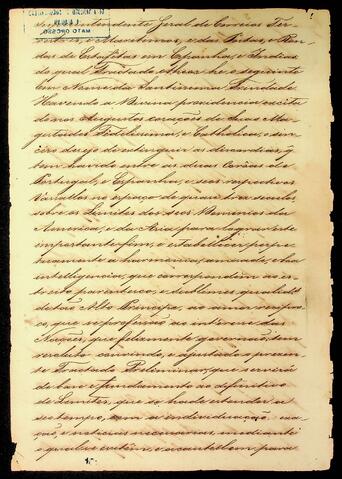 Superintendente Geral de Correios Ter-
restres, e Maritimos, e das Postas, e Ren-
das de Estafetas em Espanha, e Indias
do qual Tractado o theor he o seguinte
Em Nome da Santissima Trindade
Havendo a Divina providencia excita-
do nos Augustos corações de Suas Ma-
gestades Fidelissima, e Catholica, o sin-
cero dezejo de extinguir as desavenças, q
tem havido entre as duas Corôas de
Portugal, e Espanha, e seus respectivos
Vassallos no espaço de quasi tres seculos
sobre os Limites dos seus Dominios da
America, e da Asia: para lograr este
importante fim, e estabelecer perpe-
tuamente a harmonia, amizade, e boa
intelligencia, que correspondem ao es-
treito parentesco, e sublimes qualid.es
de tão Altos Principes, ao amor recipro-
co, que se professão, e ao interesse das
Nações, que felizmente governão, tem
resoluto, convindo, e ajustado o presen-
te Tractado Preliminar, que servirá
de base e fundamento ao definitivo
de Limites, que se hade extender a
seu tempo, com a individuação, exa-
ção, e noticias necessarias, mediante
o qual se evitem, e acautelem para